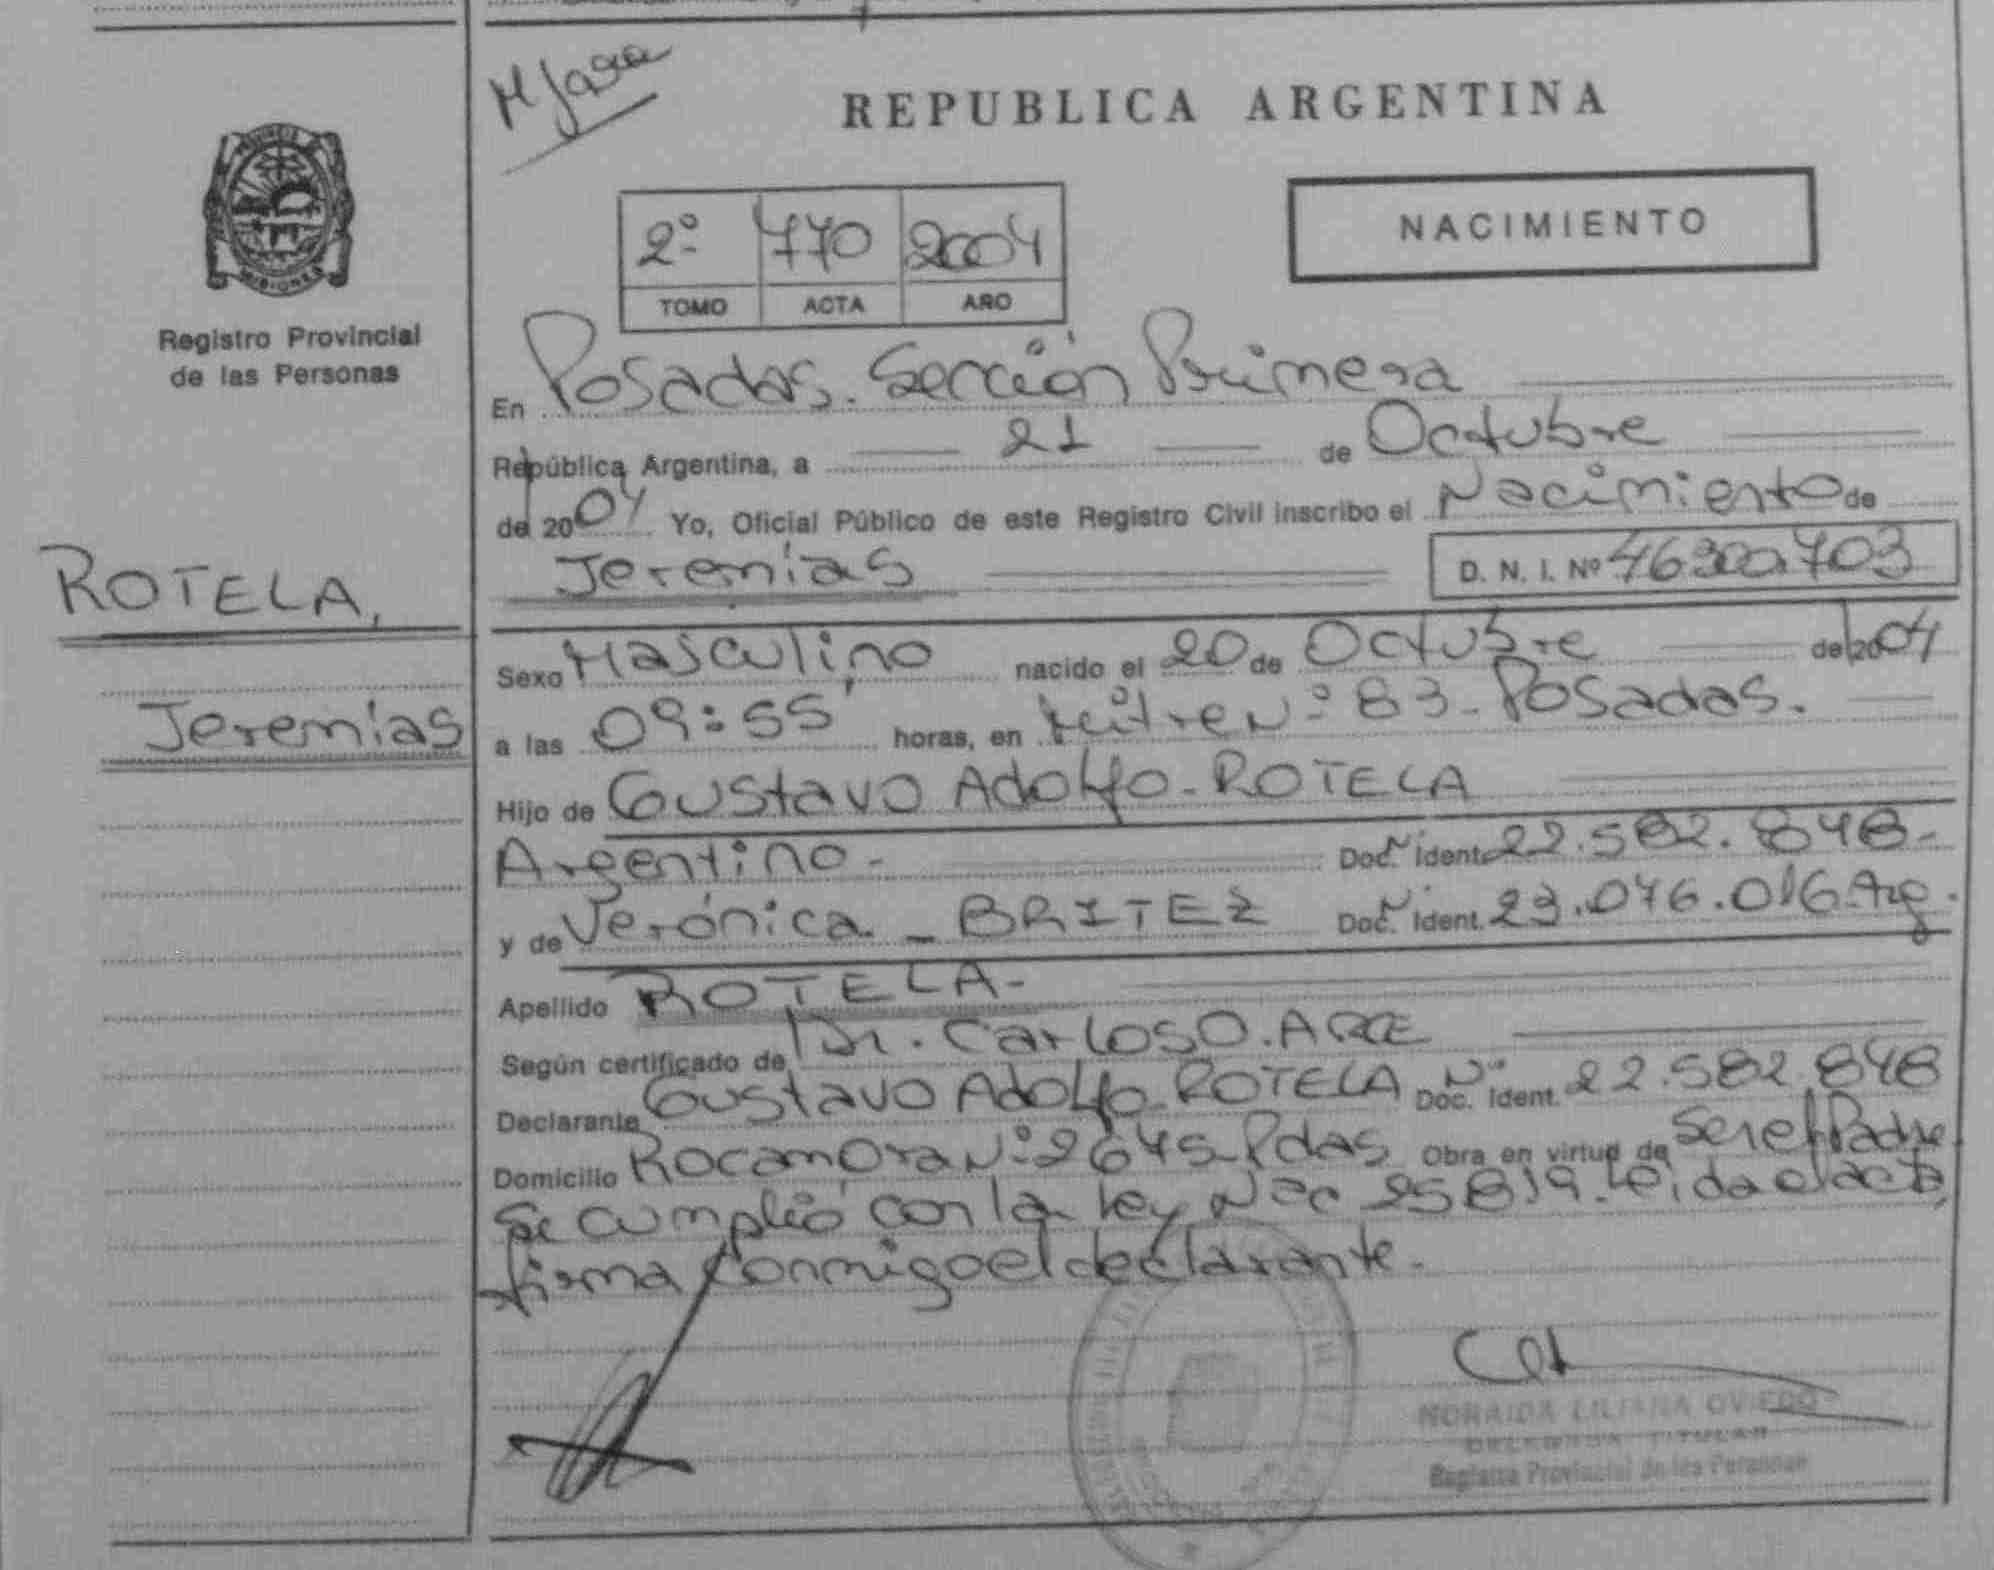 REPUBLICA ARGENTINA
NACIMIENTO
2º 770 2004
TOMO ACTA AÑO
MISIONES
Registro Provincial
de las Personas
En Posadas. Sección Primera
República Argentina, a 21 de Octubre
del 2004 Yo, Oficial Público de este Registro Civil inscribo el Nacimiento de
Jeremías D. N. I. Nº 46300.703
ROTELA,
Jeremías
Sexo Masculino nacido el 20 de Octubre del 2004
a las 09:55' horas, en Mitre Nº 83 - Posadas.
Hijo de Gustavo Adolfo - ROTELA
Argentino - Doc. Nº Ident. 22.582.848-
y de Verónica - BRITEZ Doc. Nº Ident. 23.076.016 Arg.
Apellido ROTELA-
Según certificado de Dr. Carlos O. ARCE
Declarante Gustavo Adolfo - ROTELA Doc. Nº Ident. 22.582.848
Domicilio Rocamora Nº 2645 - Pdas Obra en virtud de Ser el Padre
Se cumplió con la Ley Nac 25819. Leida el acta,
firma conmigo el declarante.
NORAIDA LILIANA OVIEDO
DELEGADA TITULAR
Registro Provincial de las Personas